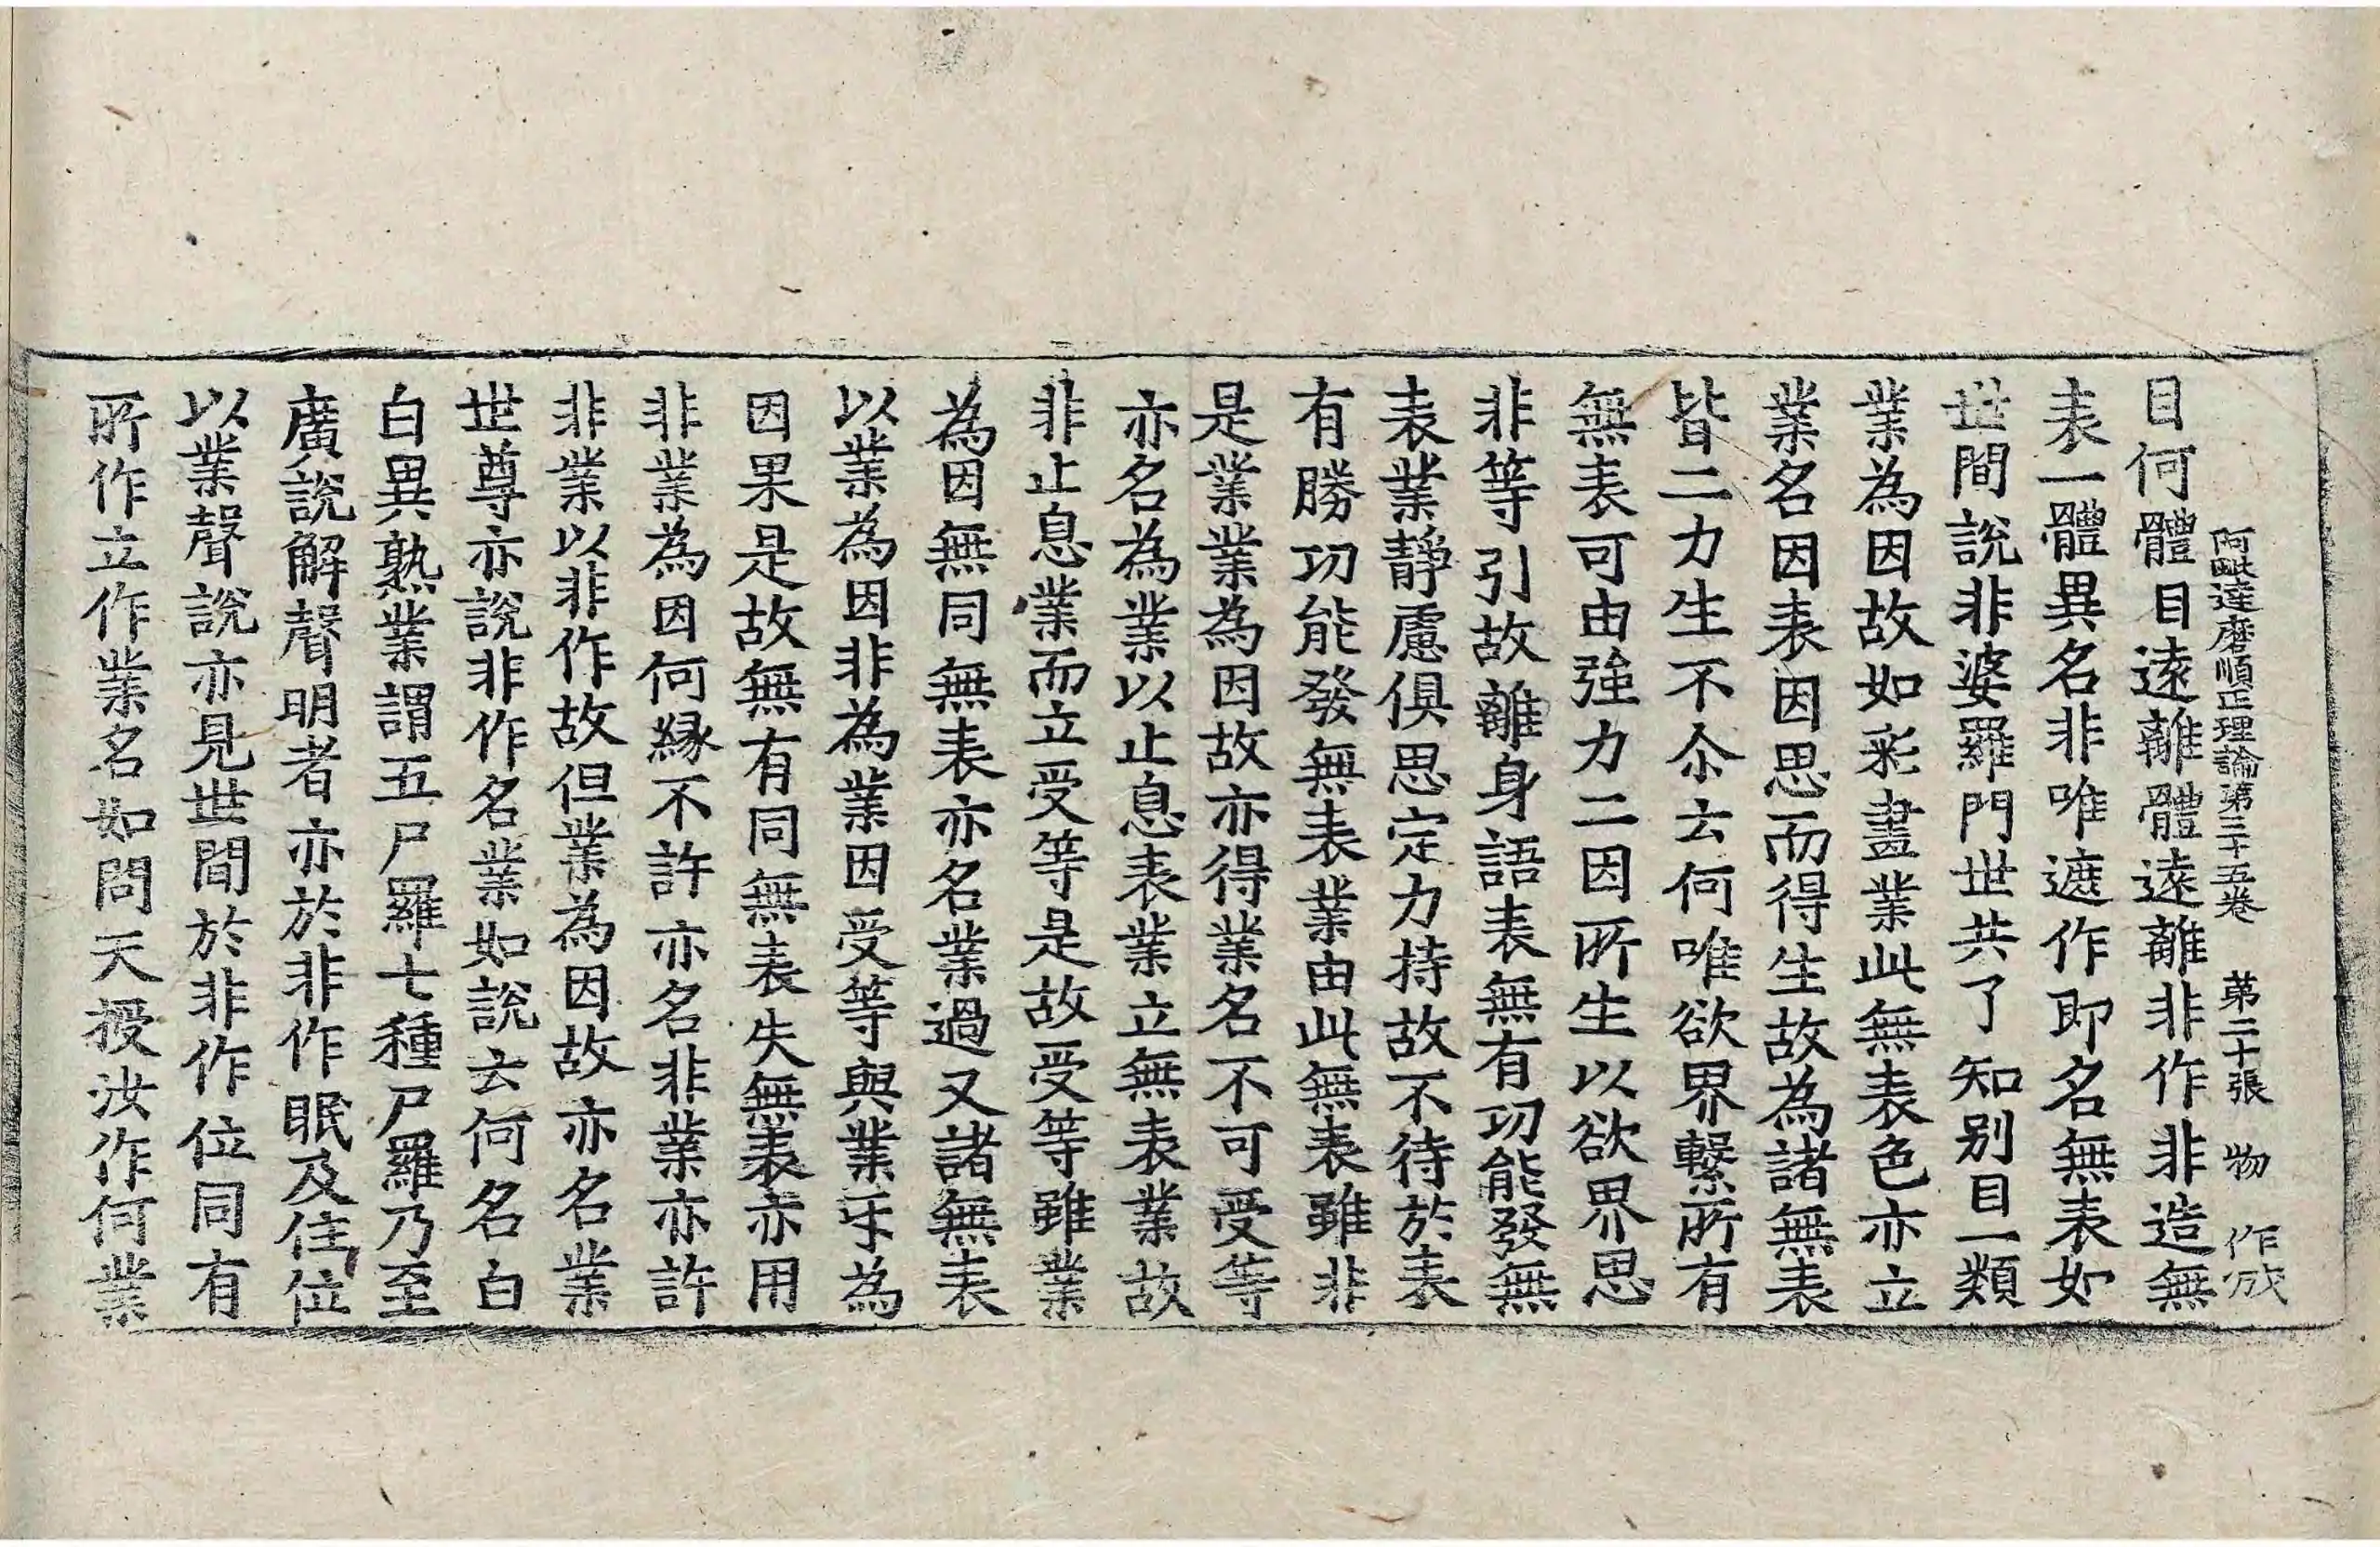 阿毗達磨順正理論第三十五卷　第二十張　物　作成
目何體目遠離體遠離非作非造無
表一體異名非唯遮作即名無表如
世間說非婆羅門世共了知别目一類
業為因故如彩畫業此無表色亦立
業名因表因思而得生故為諸無表
皆二力生不尒云何唯欲界繫所有
無表可由強力二因所生以欲界思
非等引故離身語表無有功能發無
表業靜慮俱思定力持故不待於表
有勝功能發無表業由此無表雖非
是業業為因故亦得業名不可受等
亦名為業以止息表業立無表業故
非止息業而立受等是故受等雖業
為因無同無表亦名業過又諸無表
以業為因非為業因受等與業乐為
因果是故無有同無表失無表亦用
非業為因何緣不許亦名非業亦許
非業以非作故但業為因故亦名業
世尊亦說非作名業如說云何名白
白異熟業謂五尸羅七種尸羅乃至
廣說解聲明者亦於非作眠及住位
以業聲說亦見世間於非作位同有
所作立作業名如問天授汝作何業